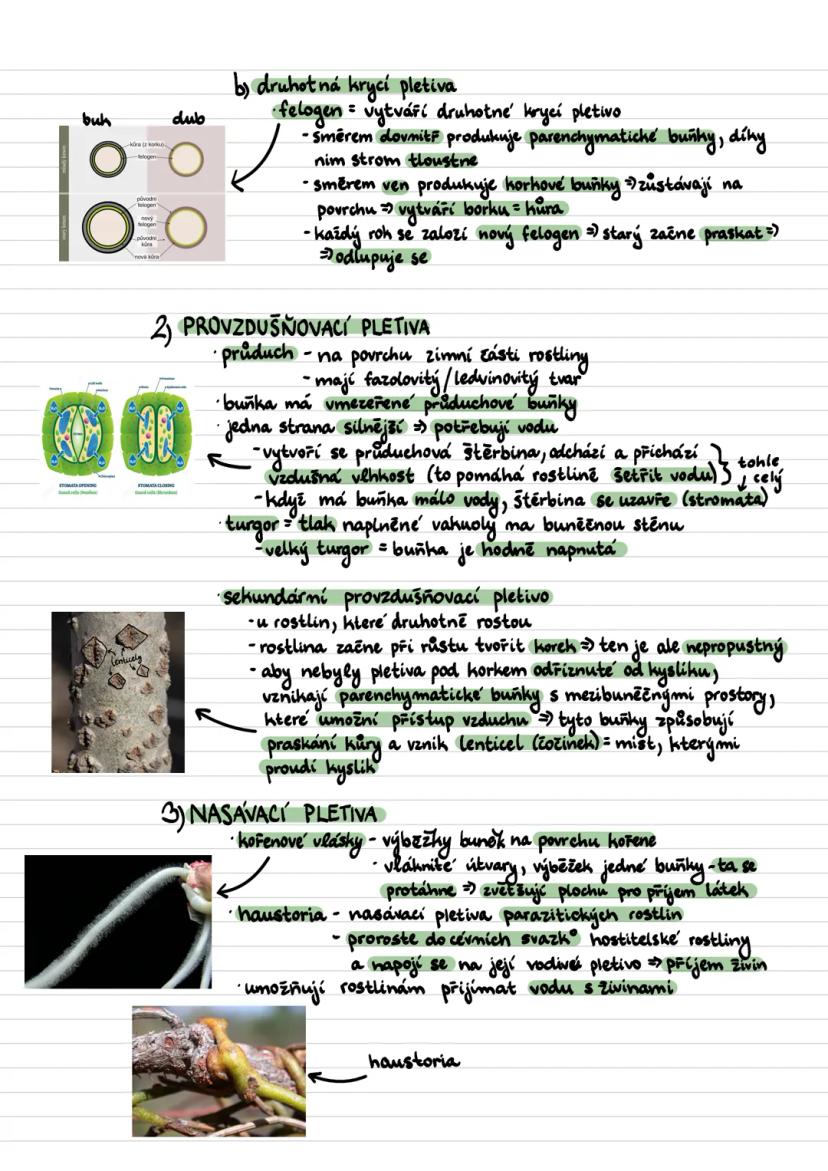 b) druhotná krycí pletiva
· felogen = vytváří druhotné krycí pletivo
buk dub
- směrem dovnitř produkuje parenchymatické buňky, díky
nim strom tloustne
- směrem ven produkuje korkové buňky ⇒ zůstávají na
povrchu ⇒ vytváří borku = kůra
- každý rok se založí nový felogen ⇒ starý začne praskat ⇒
⇒ odlupuje se
kůra (z korku)
felogen
původní felogen
nový felogen
původní kůra
nová kůra
2) PROVZDUŠŇOVACÍ PLETIVA
· průduch - na povrchu zimní části rostliny
- mají fazolovitý/ledvinovitý tvar
· buňka má vmezeřené průduchové buňky
· jedna strana silnější ⇒ potřebují vodu
- vytvoří se průduchová štěrbina, odchází a přichází
vzdušná vlhkost (to pomáhá rostlině šetřit vodu)
tohle celý
- když má buňka málo vody, štěrbina se uzavře (stromata)
· turgor = tlak naplněné vakuoly ma buněčnou stěnu
- velký turgor = buňka je hodně napnutá
STOMATA OPENING
STOMATA CLOSING
· sekundární provzdušňovací pletivo
- u rostlin, které druhotně rostou
- rostlina začne při růstu tvořit korek ⇒ ten je ale nepropustný
- aby nebyly pletiva pod korkem odříznuté od kyslíku,
vznikají parenchymatické buňky s mezibuněčnými prostory,
které umožní přístup vzduchu ⇒ tyto buňky způsobují
praskání kůry a vznik lenticel (čočinek) = míst, kterými
proudí kyslík
lenticely
3) NASÁVACÍ PLETIVA
· kořenové vlásky - výběžky buněk na povrchu kořene
· vláknité útvary, výběžek jedné buňky - ta se
protáhne ⇒ zvětšují plochu pro příjem látek
· haustoria - nasávací pletiva parazitických rostlin
- proroste do cévních svazků hostitelské rostliny
a napojí se na její vodivé pletivo ⇒ příjem živin
· umožňují rostlinám přijímat vodu s živinami
haustoria